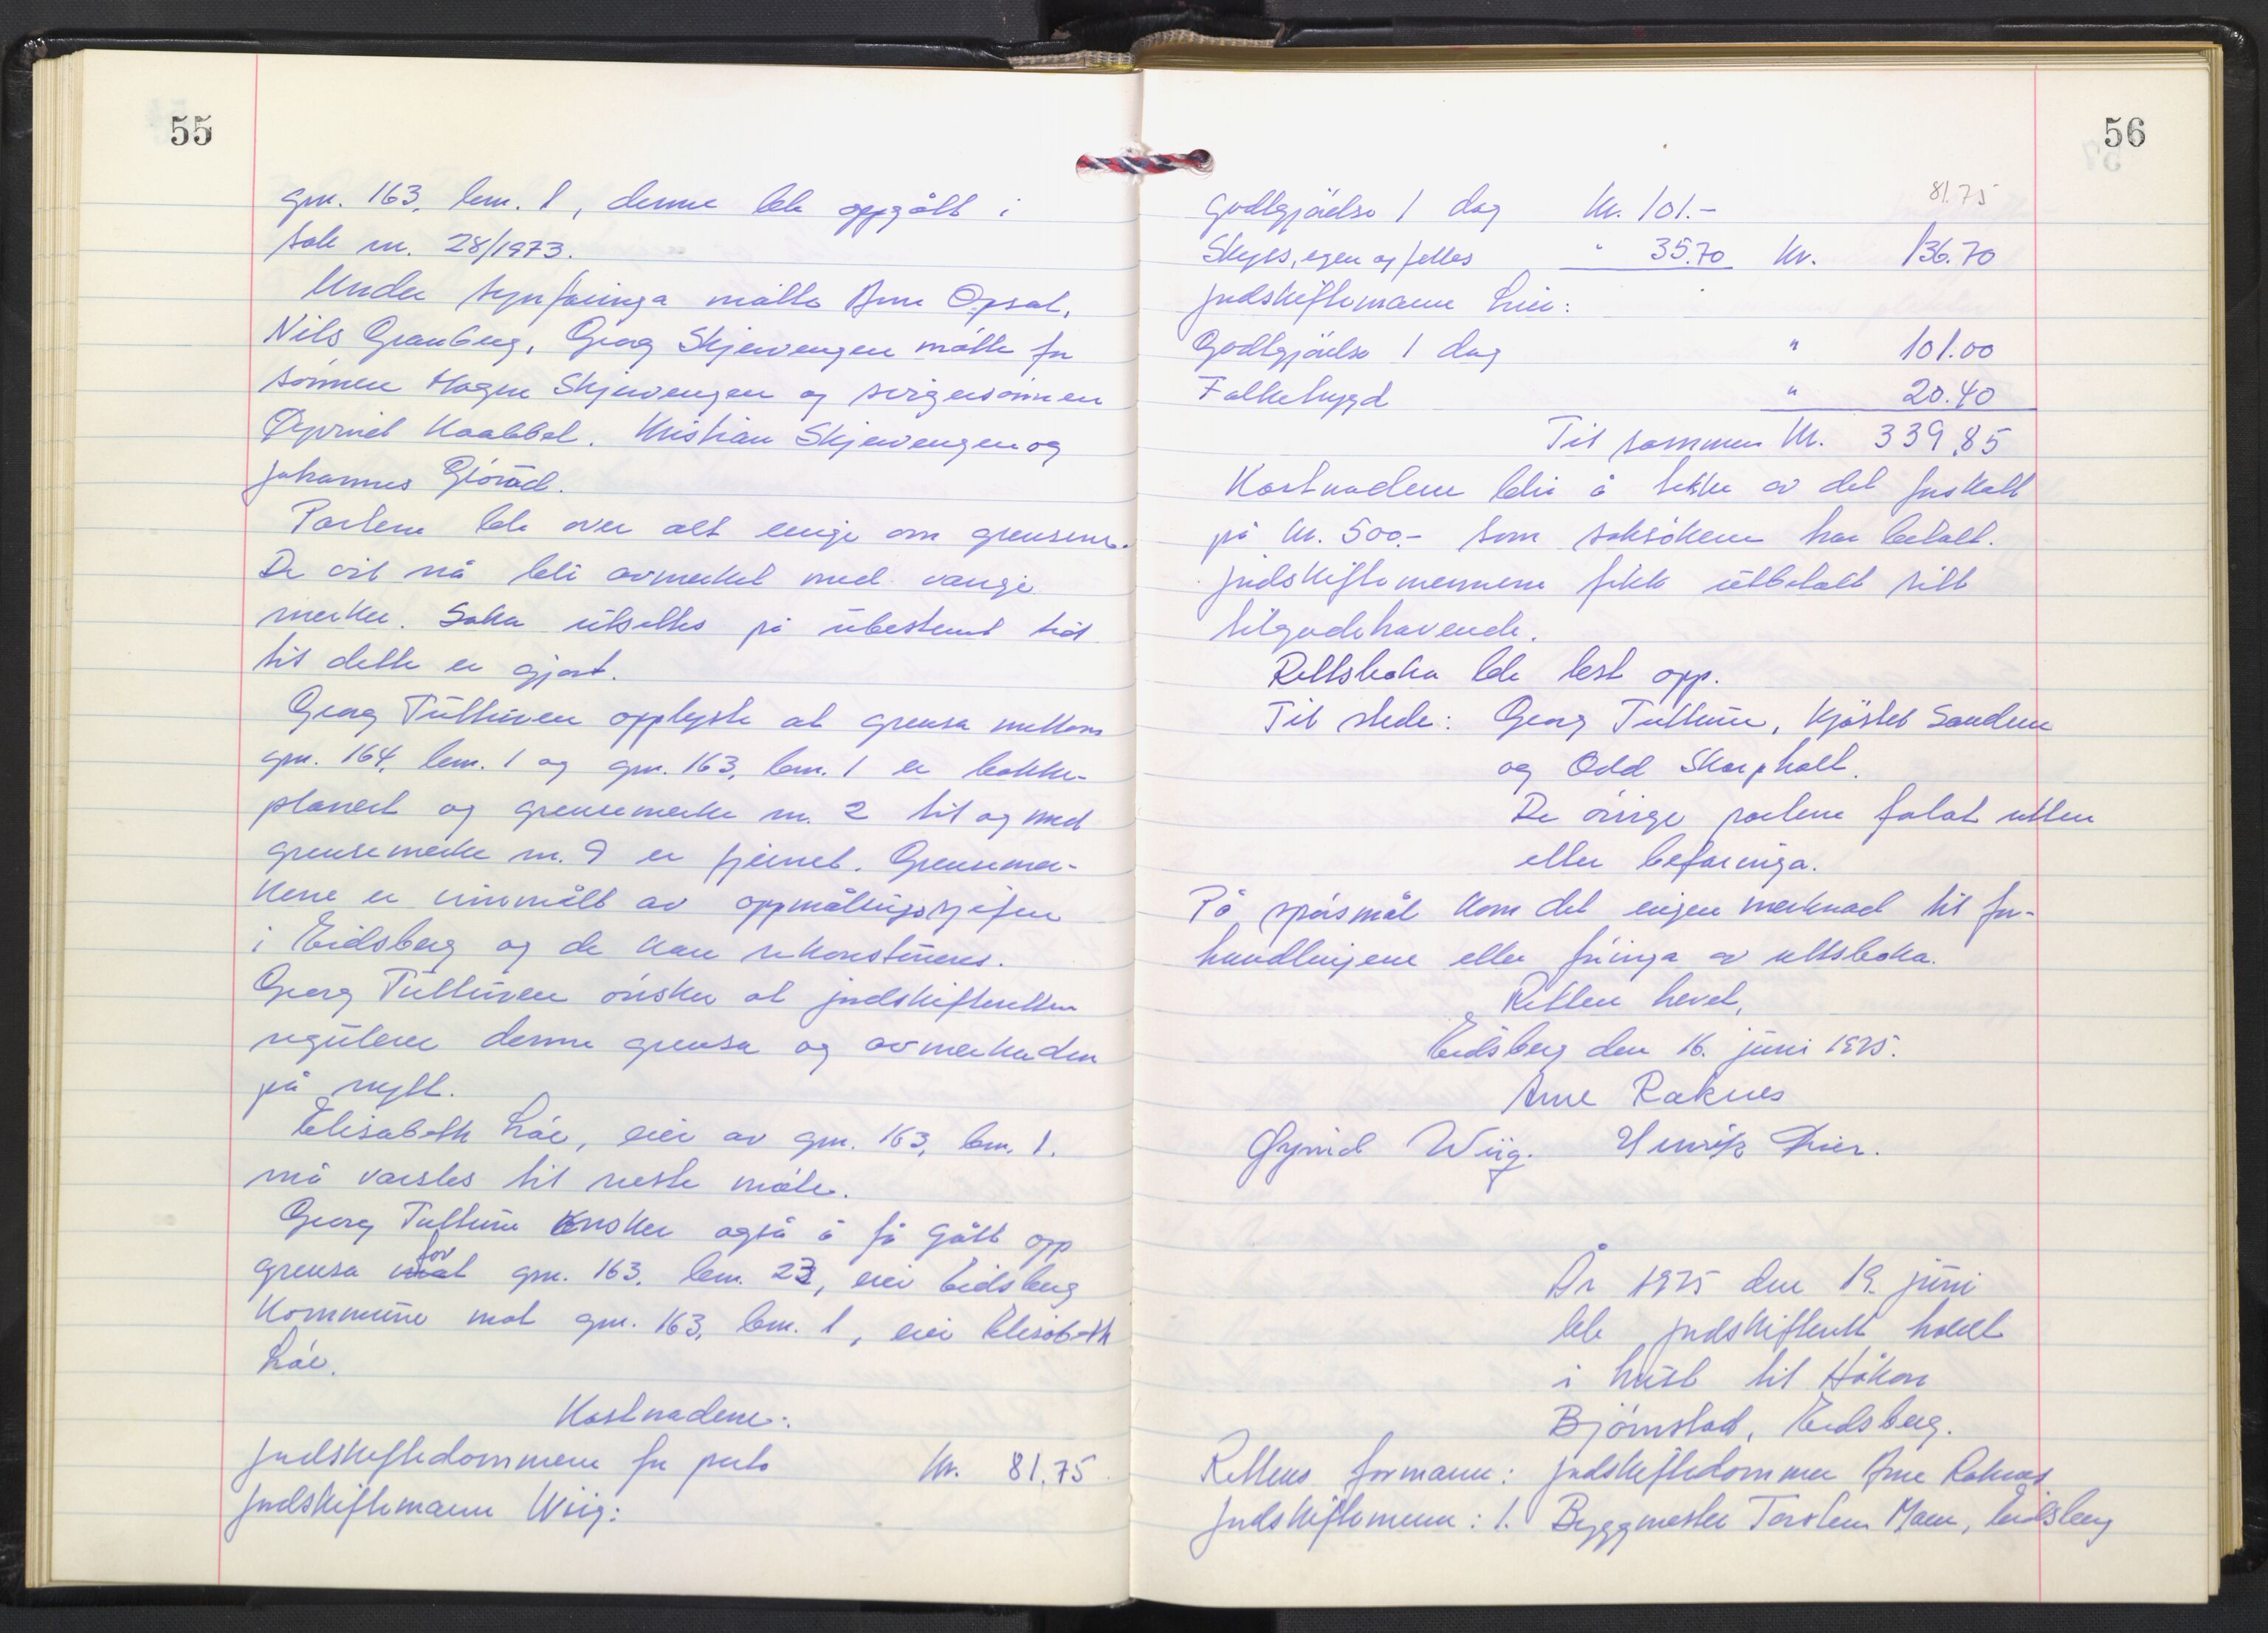 55
gnr. 163, bnr. 1, denne ble oppgått i
sak nr. 28/1973.
Under synfaringa møtte Arne Opsal,
Nils Granberg, Georg Skjervengen møtte for
sønnen Magne Skjervengen og svigersønnen
Øyvind Kaabbel. Kristian Skjervengen og
Johannes
Partene ble over alt enige om grensene.
De vil nå bli avmerket med varige
merker. Saka utsettes på ubestemt tid
til dette er gjort.
Georg Tutturen opplyste at grensa mellom
gnr. 164, bnr. 1 og gnr. 163, bnr. 1 er bakke-
planert og grensemerke nr. 2 til og med
grensemerke nr. 9 er fjernet. Grensemer-
kene er innmålt av oppmålingssjefen
i Eidsberg og de kan rekonstrueres.
Georg Tutturen ønsker at jordskifteretten
regulerer denne grensa og avmerker den
på nytt.
Elisabeth Låe, eier av gnr. 163, bnr. 1.
må varsles til neste møte.
Georg Tutturen ønsker også å få gått opp
grensa for gnr. 163, bnr. 23, eier Eidsberg
kommune mot gnr. 163, bnr. 1, eier Elisabeth
Låe.
Kostnadene:
Jordskiftedommeren for porto kr. 81.75
Jordskiftemann Wiig:
56
81.75
Godtgjørelse 1 dag kr. 101.-
Skyss, egen og felles " 35.70 kr. 136.70
Jordskiftemann Lier:
Godtgjørelse 1 dag " 101.00
Folketrygd " 20.40
Til sammen kr. 339,85
Kostnadene blir å dekke av det forskott
på kr. 500.- som saksøkeren har betalt.
Jordskiftemennene fikk utbetalt sitt
tilgodehavende.
Rettsboka ble lest opp.
Til stede: Georg Tutturen, Kjøstel Sandem
og Odd Skarpholt.
De øvrige partene forlot retten
etter befaringa.
På spørsmål kom det ingen merknad til for-
handlingene eller føringa av rettsboka.
Retten hevet,
Eidsberg den 16. juni 1975.
Arne Raknes
Øyvind Wiig. Henrik Lier.
År 1975 den 19. juni
ble jordskifterett holdt
i huset til Håkon
Bjørnstad, Eidsberg.
Rettens formann: Jordskiftedommer Arne Raknes
Jordskiftemenn: 1. Byggmester Torstein Moen, Eidsberg